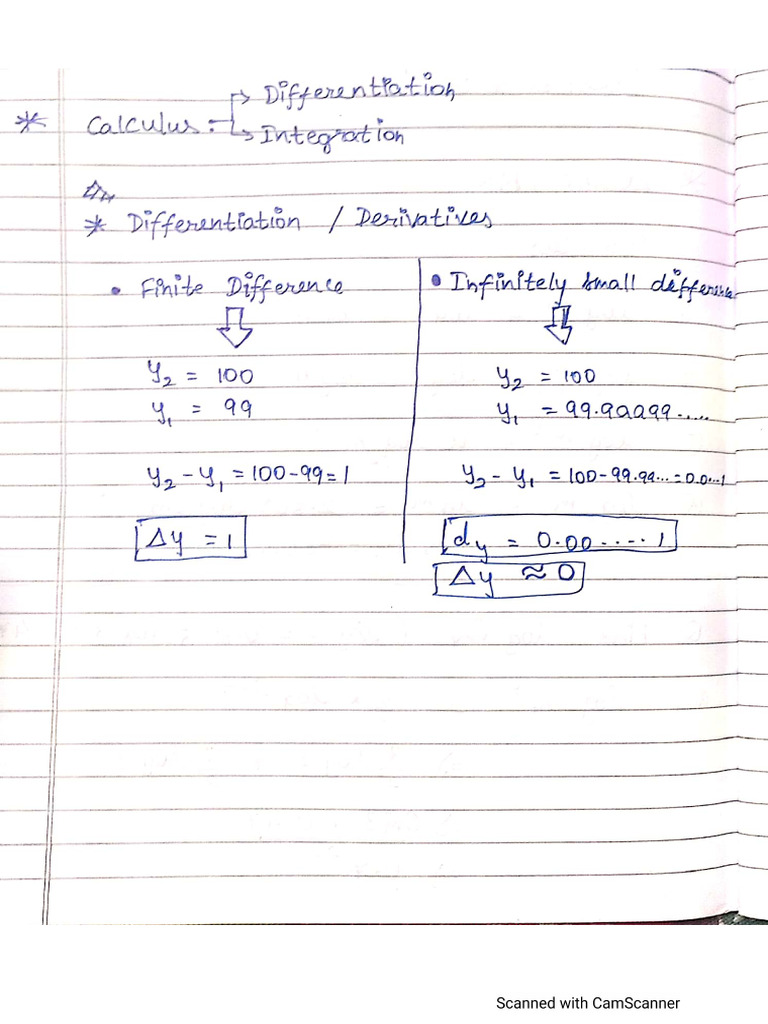 Differentiation
* Calculus :-
Integration
* Differentiation / Derivatives
• Finite Difference
y₂ = 100
y₁ = 99
y₂ - y₁ = 100 - 99 = 1
Δy = 1
• Infinitely small difference
y₂ = 100
y₁ = 99.99999.....
y₂ - y₁ = 100 - 99.99... = 0.0...1
dy = 0.00.....1
Δy ≈ 0
Scanned with CamScanner